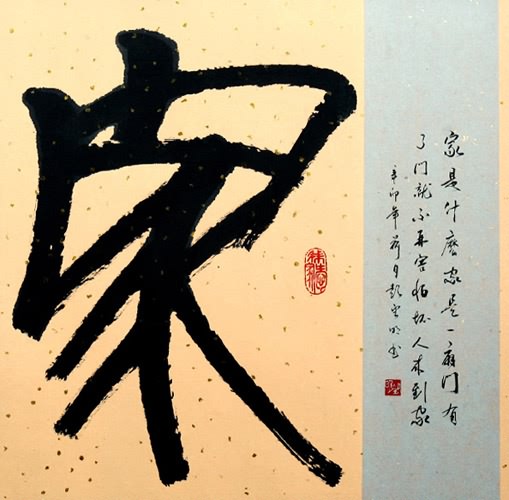 家
家是什麼家是一扇门有
了门就不再害怕坏人来到家
辛卯年荷月书